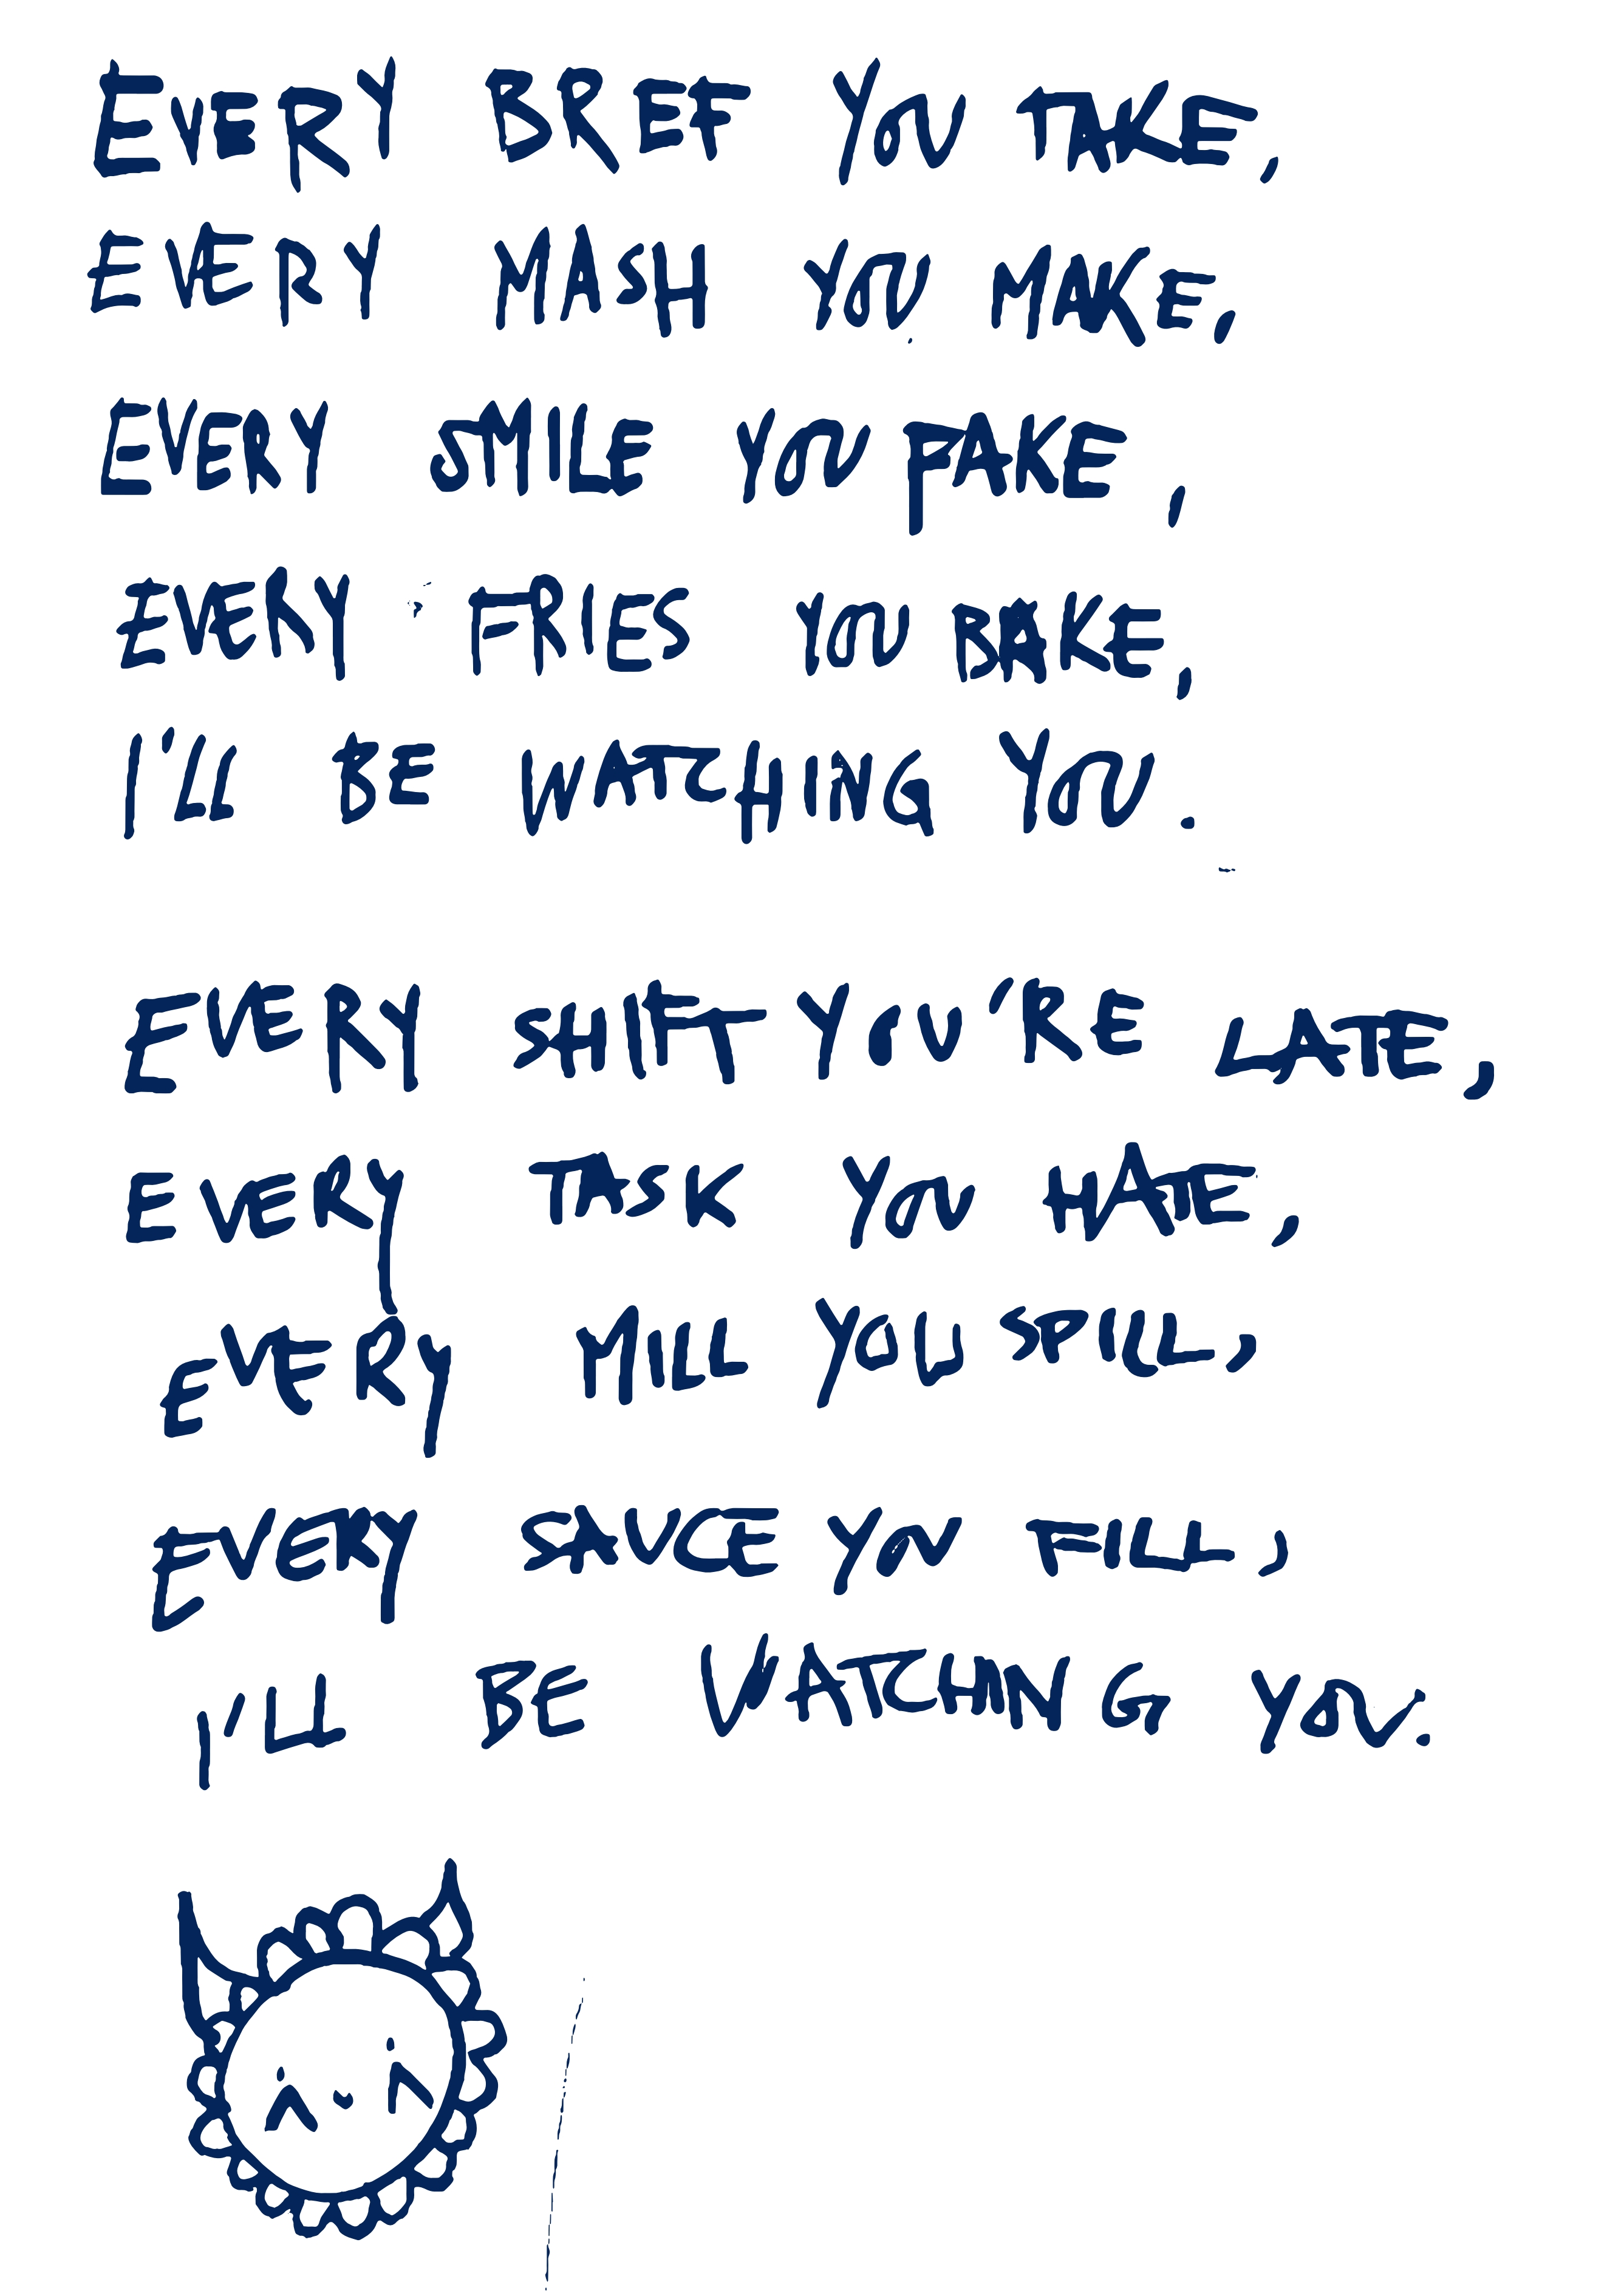 EVERY BREF YOU TAKE,
EVERY MASH YOU MAKE,
EVERY SMILE YOU FAKE,
EVERY FRIES YOU BAKE,
I'LL BE WATCHING YOU.
EVERY SHIFT YOU'RE LATE,
EVERY TASK YOU HATE,
EVERY MILL YOU SPILL,
EVERY SAUCE YOU FILL,
I'LL BE WATCHING YOU.